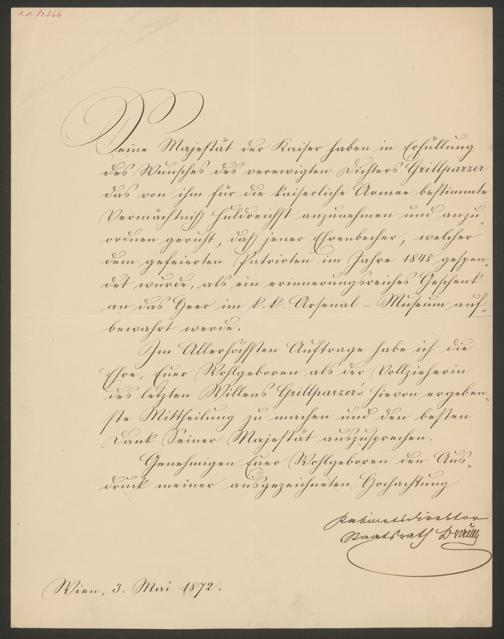 Seine Majestät der Kaiser haben in Erfüllung
des Wunsches des verewigten Dichters Grillparzer
das von ihm für die kaiserliche Armee bestimmte
Vermächtniß huldreichst anzunehmen und anzu-
ordnen geruht, daß jener Ehrenbecher, welcher
dem gefeierten Patrioten im Jahre 1848 gespen-
det wurde, als ein erinnerungsreiches Geschenk
an das Heer im k. k. Arsenal-Museum auf-
bewahrt werde.
Im Allerhöchsten Auftrage habe ich die
Ehre, Euer Wohlgeboren als der Vollzieherin
des letzten Willens Grillparzer's hievon ergeben-
ste Mittheilung zu machen und den besten
Dank Seiner Majestät auszusprechen.
Genehmigen Euer Wohlgeboren den Aus-
druck meiner ausgezeichneten Hochachtung
Kabinetsdirektor
Staatsrath Braun
Wien, 3. Mai 1872.